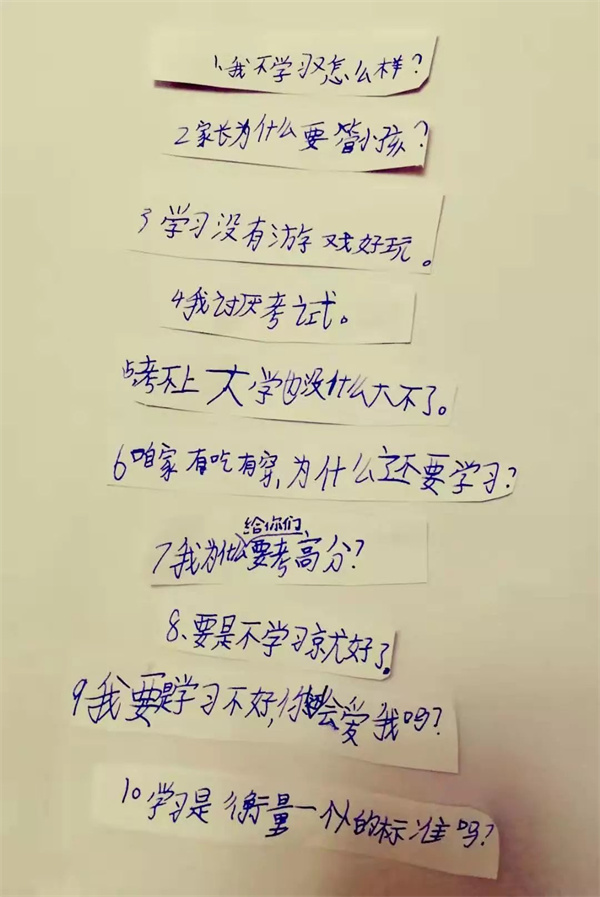 1、我不学习又怎么样？
2家长为什么要管小孩？
3学习没有游戏好玩。
4我讨厌考试。
5考不上大学也没什么大不了。
6咱家有吃有穿，为什么还要学习？
给你们
7我为什么要考高分？
8、要是不学习就好了。
9我要是学习不好，你会爱我吗？
10学习是衡量一个人的标准吗？